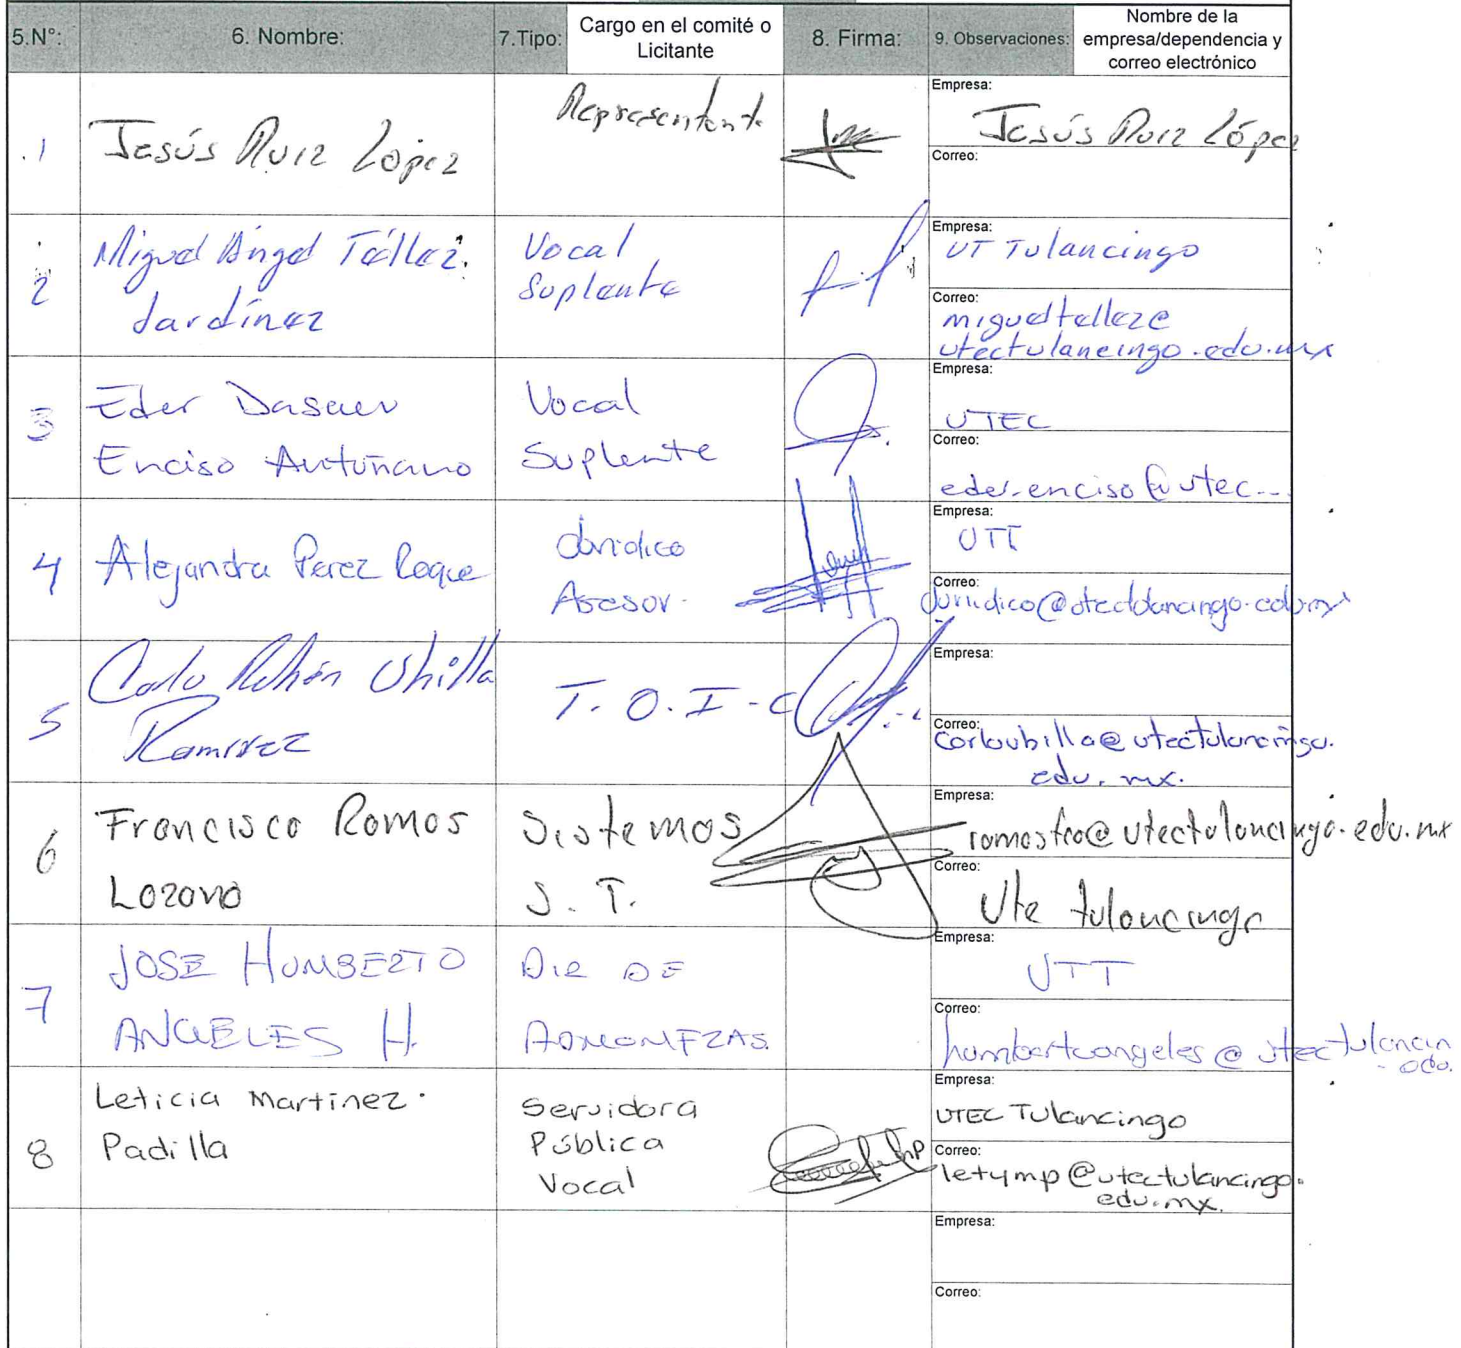 5.N°: 6. Nombre: 7.Tipo: Cargo en el comité o Licitante 8. Firma: 9. Observaciones: Nombre de la empresa/dependencia y correo electrónico
.1 Jesús Ruiz López Representante
Empresa: Jesús Ruiz López
Correo:
2 Miguel Ángel Téllez
Jardínez
Vocal
Suplente
Empresa: UT Tulancingo
Correo: migueltelleze
utectulancingo.edu.mx
3 Eder Dasaev
Enciso Antuñano
Vocal
Suplente
Empresa: UTEC
Correo: eder.enciso@utec...
4 Alejandra Perez Roque
Jurídico
Asesor.
Empresa: UTT
Correo: Juridico@utectulancingo.edu.mx
5 Carlo Rubén Ubilla
Ramírez
T.O.I.C
Empresa:
Correo: carloubilla@utectulancingo.
edu.mx.
6 Francisco Ramos
Lozano
Sistemas
S.T.
Empresa: ramosfco@utectulancingo.edu.mx
Correo: Ute tulancingo
7 JOSE HUMBERTO
ANGELES H.
DIR DE
ADMON FZAS.
Empresa: UTT
Correo: humbertoangeles@utectulancin
edo.
8 Leticia Martínez.
Padilla
Servidora
Pública
Vocal
Empresa: UTEC Tulancingo
Correo: letymp@utectulancingo.
edu.mx.
Empresa:
Correo: